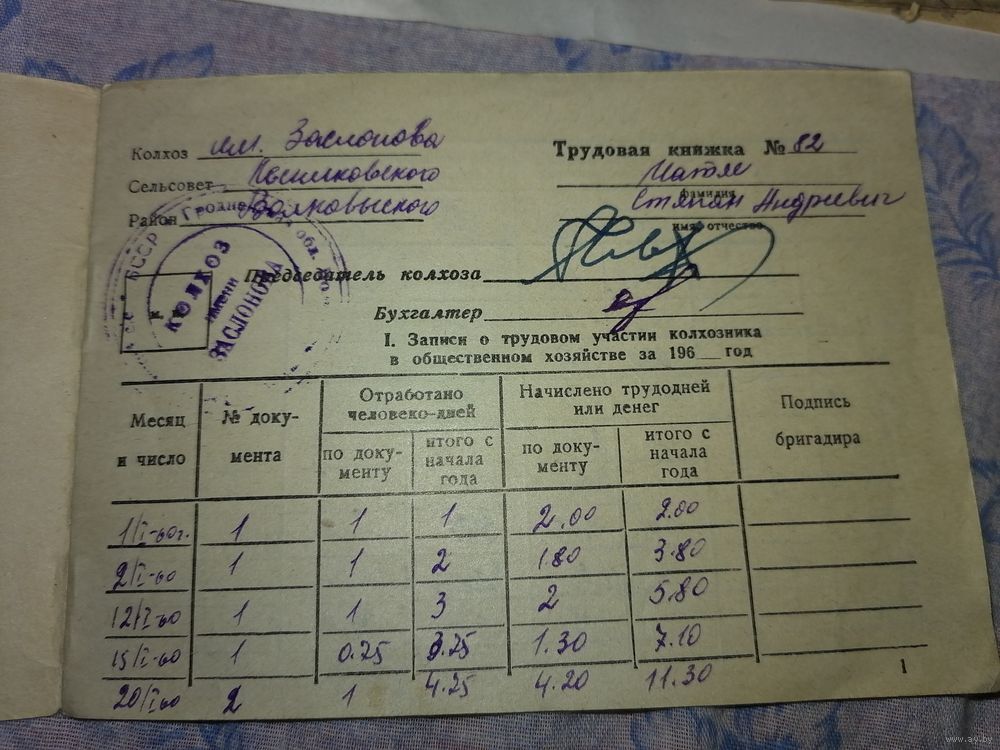 Колхоз им. Заслонова
Трудовая книжка № 82
Сельсовет
фамилия
Район Волковыского
Степан Андреевич
имя, отчество
БССР Гродненская обл.
КОЛХОЗ
имени
ЗАСЛОНОВА
Председатель колхоза
Бухгалтер
I. Записи о трудовом участии колхозника
в общественном хозяйстве за 196 год
Месяц и число
№ доку-мента
Отработано человеко-дней
Начислено трудодней или денег
Подпись бригадира
по доку-менту
итого с начала года
по доку-менту
итого с начала года
1/I-60г. 1 1 1 2.00 2.00
2/I-60 1 1 2 1.80 3.80
12/I-60 1 1 3 2 5.80
15/I-60 1 0.75 3.75 1.30 7.10
20/I 60 2 1 4.25 4.20 11.30
1
www.ay.by